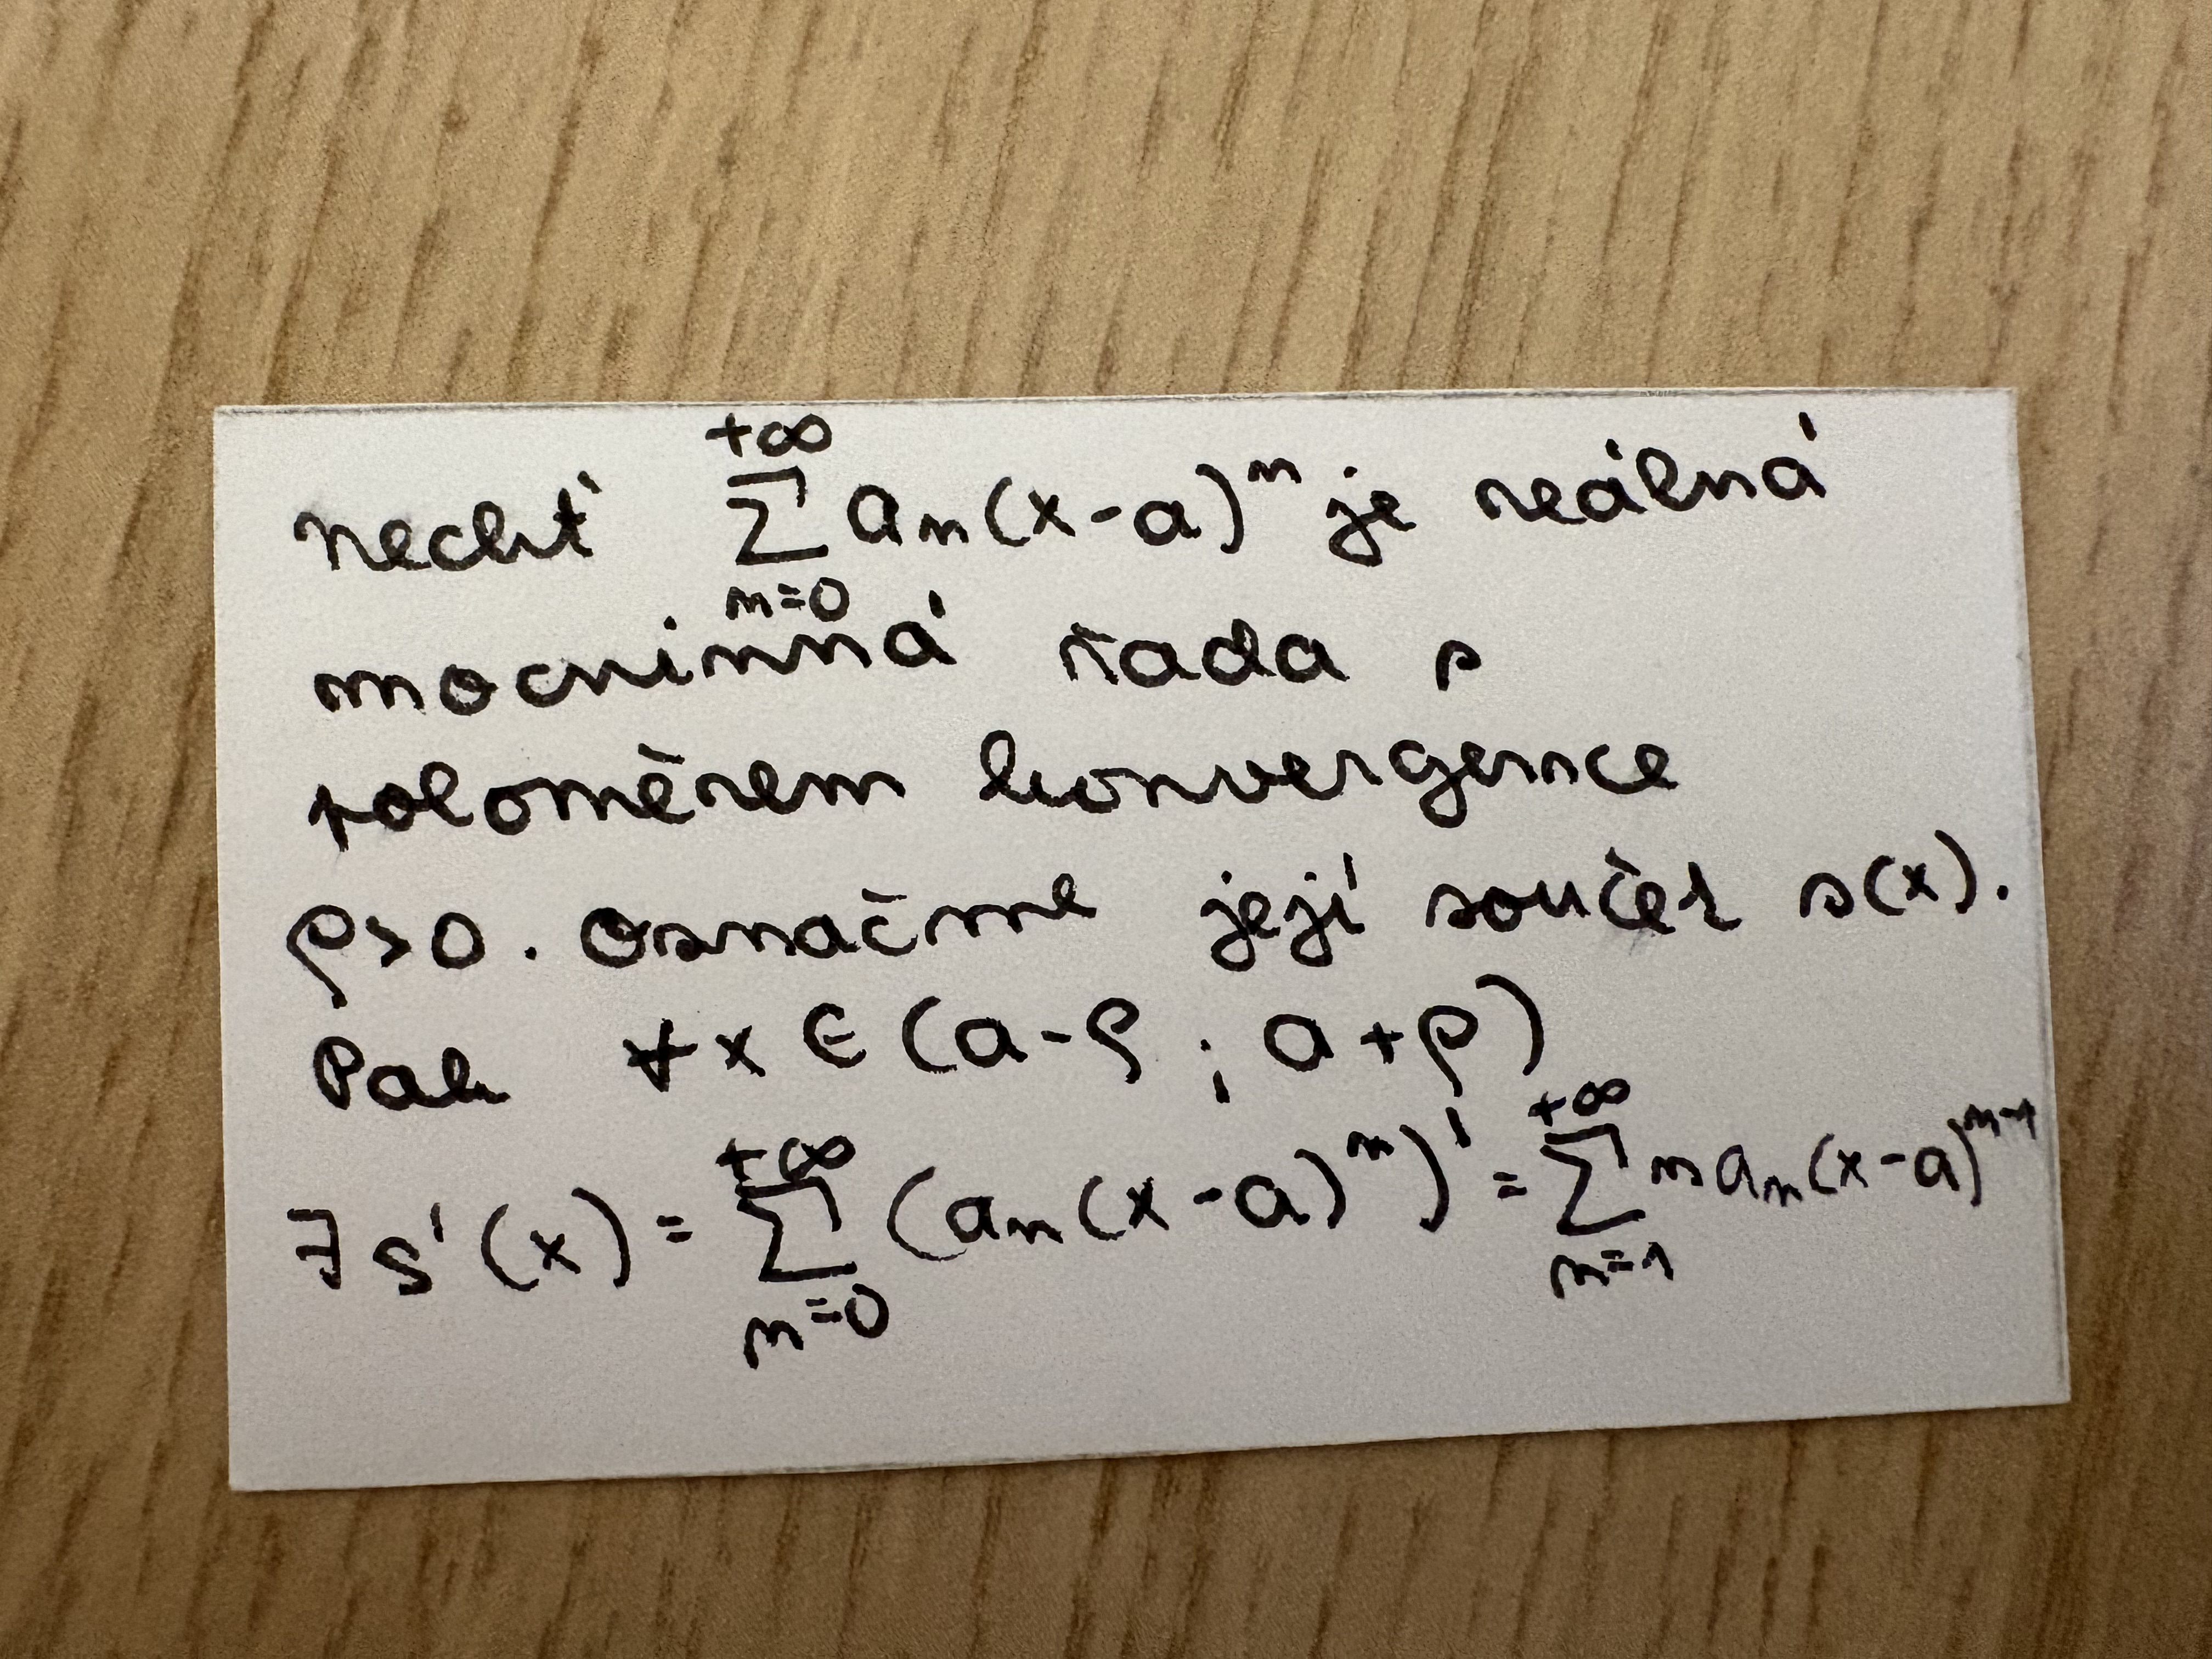 Nechť $\sum_{n=0}^{+\infty} a_n(x-a)^n$ je reálná
mocninná řada s
poloměrem konvergence
ρ>0. Označme její součet s(x).
Pak ∀x ∈ (a-ρ ; a+ρ)
∃ s'(x) = $\sum_{n=0}^{+\infty} (a_n(x-a)^n)' = \sum_{n=1}^{+\infty} n a_n(x-a)^{n-1}$